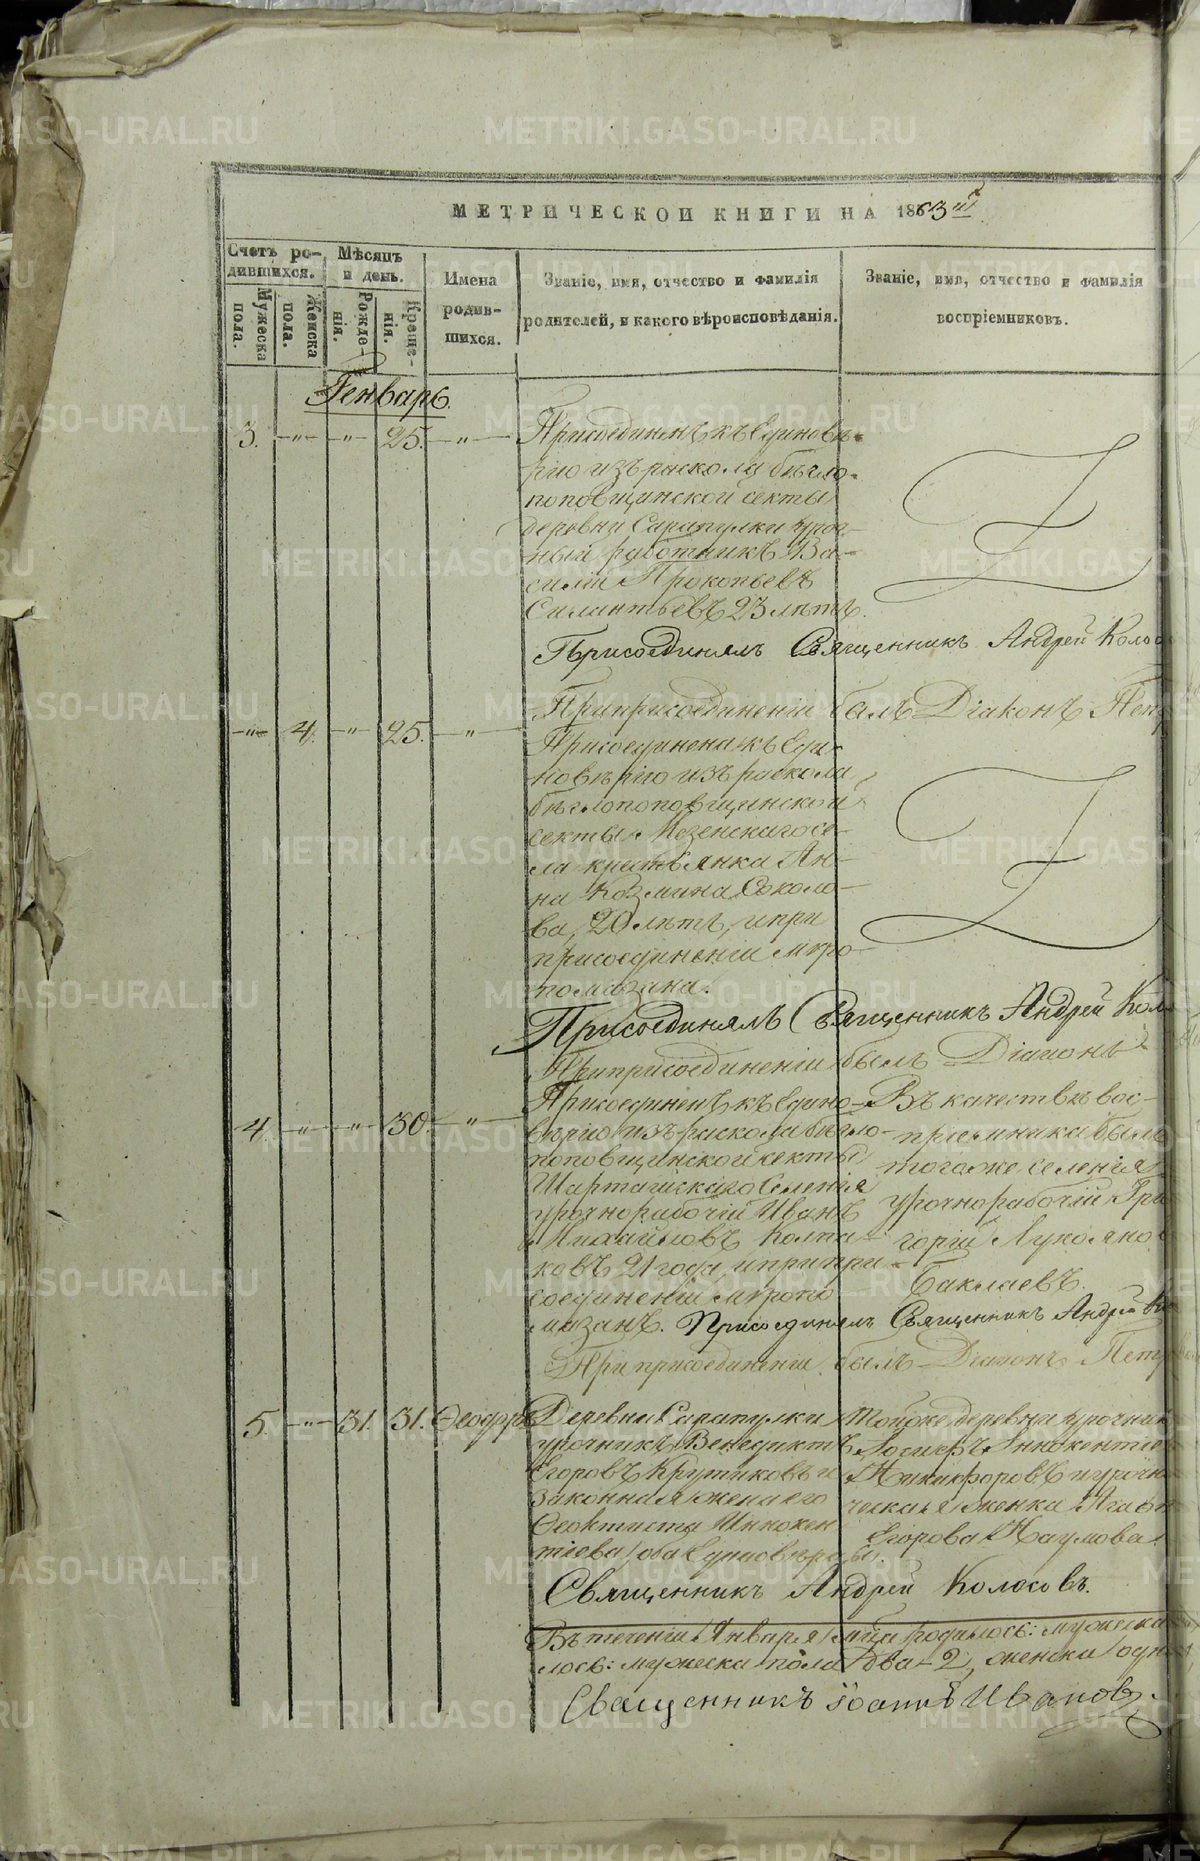 МЕТРИЧЕСКОЙ КНИГИ НА 1863й
Счетъ родившихся.
Мужеска пола.
Женска пола.
Мѣсяцъ и день.
Рожденія.
Крещенія.
Имена родившихся.
Званіе, имя, отчество и фамилія родителей, и какого вѣроисповѣданія.
Званіе, имя, отчество и фамилія воспріемниковъ.
Генварь.
3. -"- -"- 25. -"-
Присоединенъ къ Единовѣ-
рію изъ раскола бѣгло-
поповщинской секты
деревни Сарапулки уроч-
ный работникъ Ва-
силій Прокопьевъ
Силантьевъ 23 лѣтъ.
Присоединялъ Священникъ Андрей
При присоединеніи былъ Діаконъ
-"- 4. -"- 25. -"-
Присоединена къ Еди-
новѣрію изъ раскола
бѣглопоповщинской
секты Мезенскаго се-
ла крестьянка Ан-
на Козмина Соколо-
ва, 20 лѣтъ, и при
присоединеніи мѵро-
помазана.
Присоединялъ Священникъ Андрей
При присоединеніи былъ Діаконъ
4. -"- -"- 30. -"-
Присоединенъ къ Едино-
вѣрію изъ раскола бѣгло-
поповщинской секты
Шарташскаго Селенія
урочнорабочій Иванъ
Михайловъ Колпа-
ковъ 21 года, и при при-
соединеніи мѵропо
мазанъ. Присоединялъ Священникъ Андрей
При присоединеніи былъ Діаконъ
Въ качествѣ вос-
пріемника былъ
тогоже селенія
урочнорабочій Гри
горій
Баклаевъ.
5. -"- 31. 31. Ѳеодоръ
Деревни Сарапулки
урочникъ Венедиктъ
Егоровъ Крутиковъ и
законная жена его
Ѳеоктиста Иннокен
тіева, оба Единовѣрцы.
Тойже деревни урочник
Іосифъ
Никифоровъ и уроч
ческая женка
Егорова Наумова.
Священникъ Андрей Колосовъ.
Въ теченіи Января м-ца родилось: мужеска
лось: мужеска пола два - 2, женска
Священникъ Іоаннъ Ивановъ.
METRIKI.GASO-URAL.RU